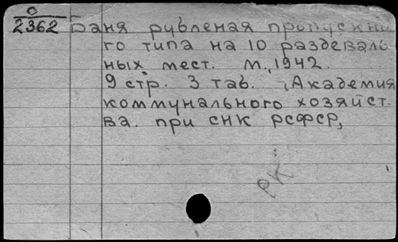 О
2362 Баня рубленая пропускно
го типа на 10 раздеваль
ных мест. М, 1942.
9 стр. 3 таб. (Академия
коммунального хозяйст.
ва. при СНК РСФСР,
РК